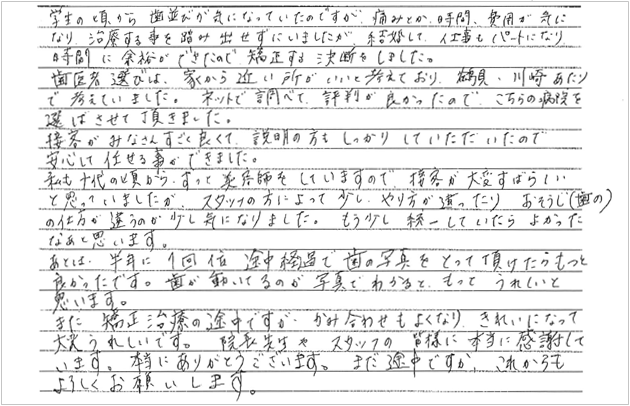 学生の頃から 歯並びが気になっていたのですが、痛みとか、時間、費用が気に
なり 治療する事を踏み出せずにいましたが、結婚して、仕事もパートになり
時間に余裕ができたので、矯正する決断をしました。
歯医者選びは、家から近い所がいいと考えており、鶴見・川崎あたり
で考えていました。ネットで調べて、評判が良かったので、こちらの病院を
選ばさせて頂きました。
接客がみなさんすごく良くて、説明の方もしっかりしていただいたので
安心して任せる事ができました。
私も十代の頃から、ずっと美容師をしていますので、接客が大変すばらしい
と思っていましたが、スタッフの方によって少し、やり方が違ったり おそうじ(歯の)
の仕方が違うのが少し気になりました。もう少し統一していたらよかった
なあと思います。
あとは、半年に1回位 途中経過で歯の写真をとって頂けたらもっと
良かったです。歯が動いてるのが写真でわかると、もっとうれしいと
思います。
まだ 矯正治療の途中ですが、かみ合わせもよくなり、きれいになって
大変うれしいです。院長先生や スタッフの皆様に本当に感謝して
います。本当にありがとうございます。まだ途中ですが、これからも
よろしくお願いします。